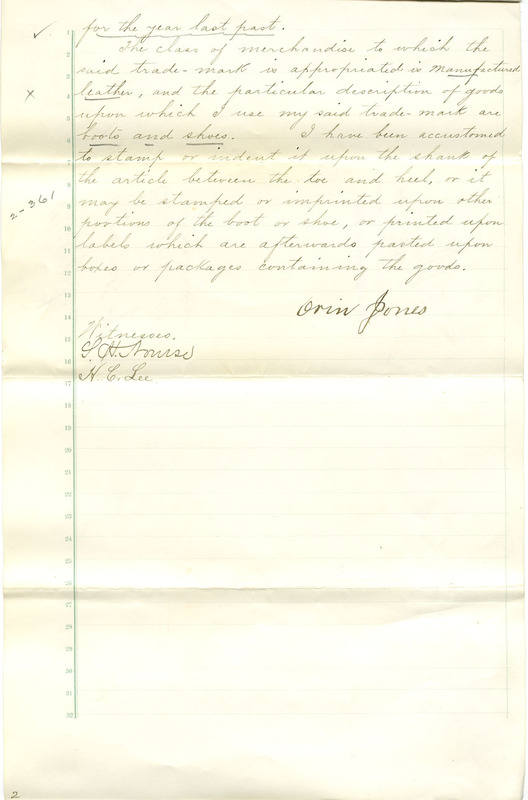 for the year last past.
The class of merchandise to which the
said trade-mark is appropriated is manufactured
leather, and the particular description of goods
upon which I use my said trade-mark are
boots and shoes. I have been accustomed
to stamp or indent it upon the shank of
the article between the toe and heel, or it
may be stamped or imprinted upon other
portions of the boot or shoe, or printed upon
labels which are afterwards pasted upon
boxes or packages containing the goods.
Orin Jones
Witnesses.
S. H. Nourse
H. C. Lee
2-361
1
2
3
4
5
6
7
8
9
10
11
12
13
14
15
16
17
18
19
20
21
22
23
24
25
26
27
28
29
30
31
32
2